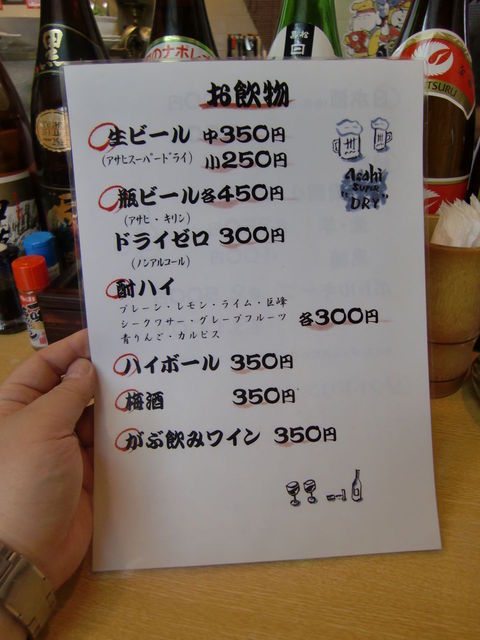 お飲物
生ビール 中350円
(アサヒスーパードライ) 小250円
瓶ビール各450円
(アサヒ・キリン)
ドライゼロ 300円
(ノンアルコール)
酎ハイ
プレーン・レモン・ライム・巨峰
シークワサー・グレープフルーツ 各300円
青りんご・カルピス
ハイボール 350円
梅酒 350円
がぶ飲みワイン 350円
Asahi
"SUPER
DRY"
黒
のナポレ